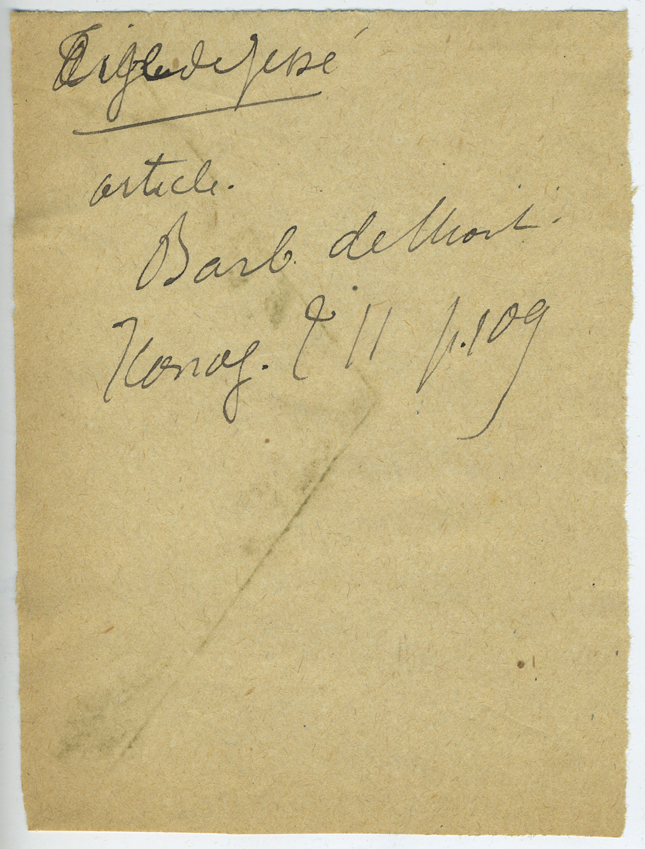 Tige de Jessé
article.
Barb. de Mont.
Iconog. t II p. 109